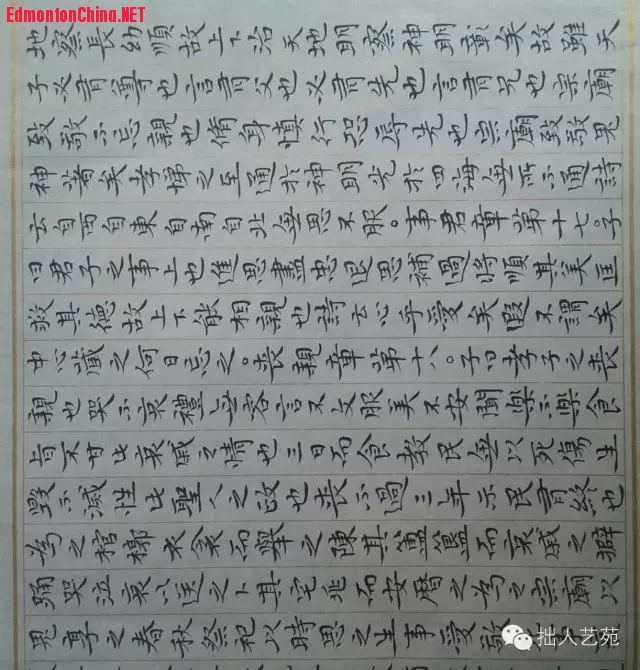 EdmontonChina.NET
地察長幼順故上下治天地明察神明彰矣故雖天
子必有尊也言有父也必有先也言有兄也宗廟
致敬不忘親也脩身慎行恐辱先也宗廟致敬鬼
神著矣孝悌之至通於神明光於四海無所不通詩
云自西自東自南自北無思不服。事君章第十七。子
曰君子之事上也進思盡忠退思補過將順其美匡
救其德故上下能相親也詩云心乎愛矣遐不謂矣
中心藏之何日忘之。喪親章第十八。子曰孝子之喪
親也哭不哀禮無容言不文服美不安聞樂不樂食
旨不甘此哀戚之情也三日而食教民無以死傷生
毀不滅性此聖人之政也喪不過三年示民有終也
為之棺槨衣衾而舉之陳其簠簋而哀戚之擗
踊哭泣哀以送之卜其宅兆而安厝之為之宗廟以
鬼享之春秋祭祀以時思之生事愛敬
拙人艺苑